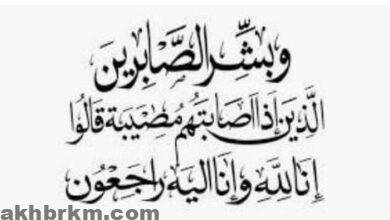 وَبَشِّرِ الصَّابِرِينَ
الَّذِينَ إِذَا أَصَابَتْهُم مُّصِيبَةٌ قَالُوا
إِنَّا لِلَّهِ وَإِنَّا إِلَيْهِ رَاجِعُونَ
akhbrkm.com